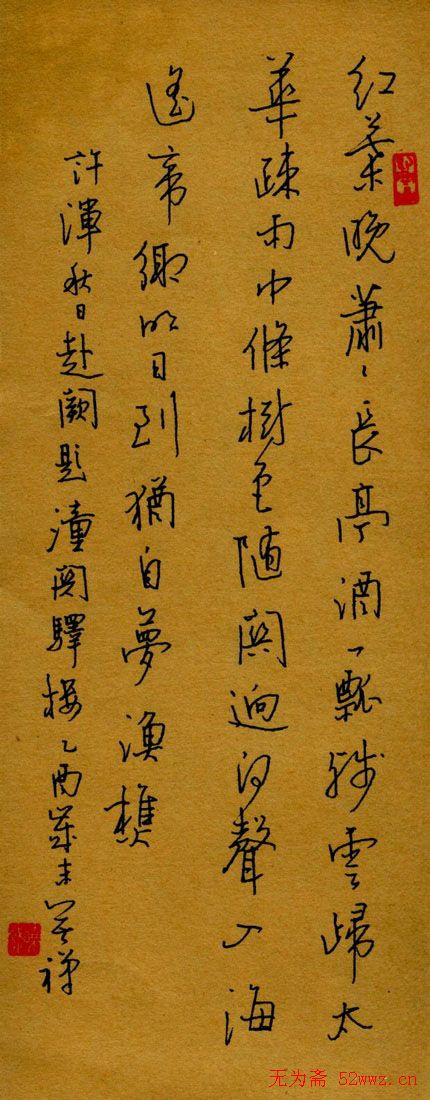 紅葉晚蕭〻長亭酒一瓢殘雲歸太
華疎雨中條樹色隨關迥河聲入海
遙帝鄉明日到猶自夢漁樵
許渾秋日赴闕題潼關驛樓乙酉歲末禅
无为斋 52wwz.cn